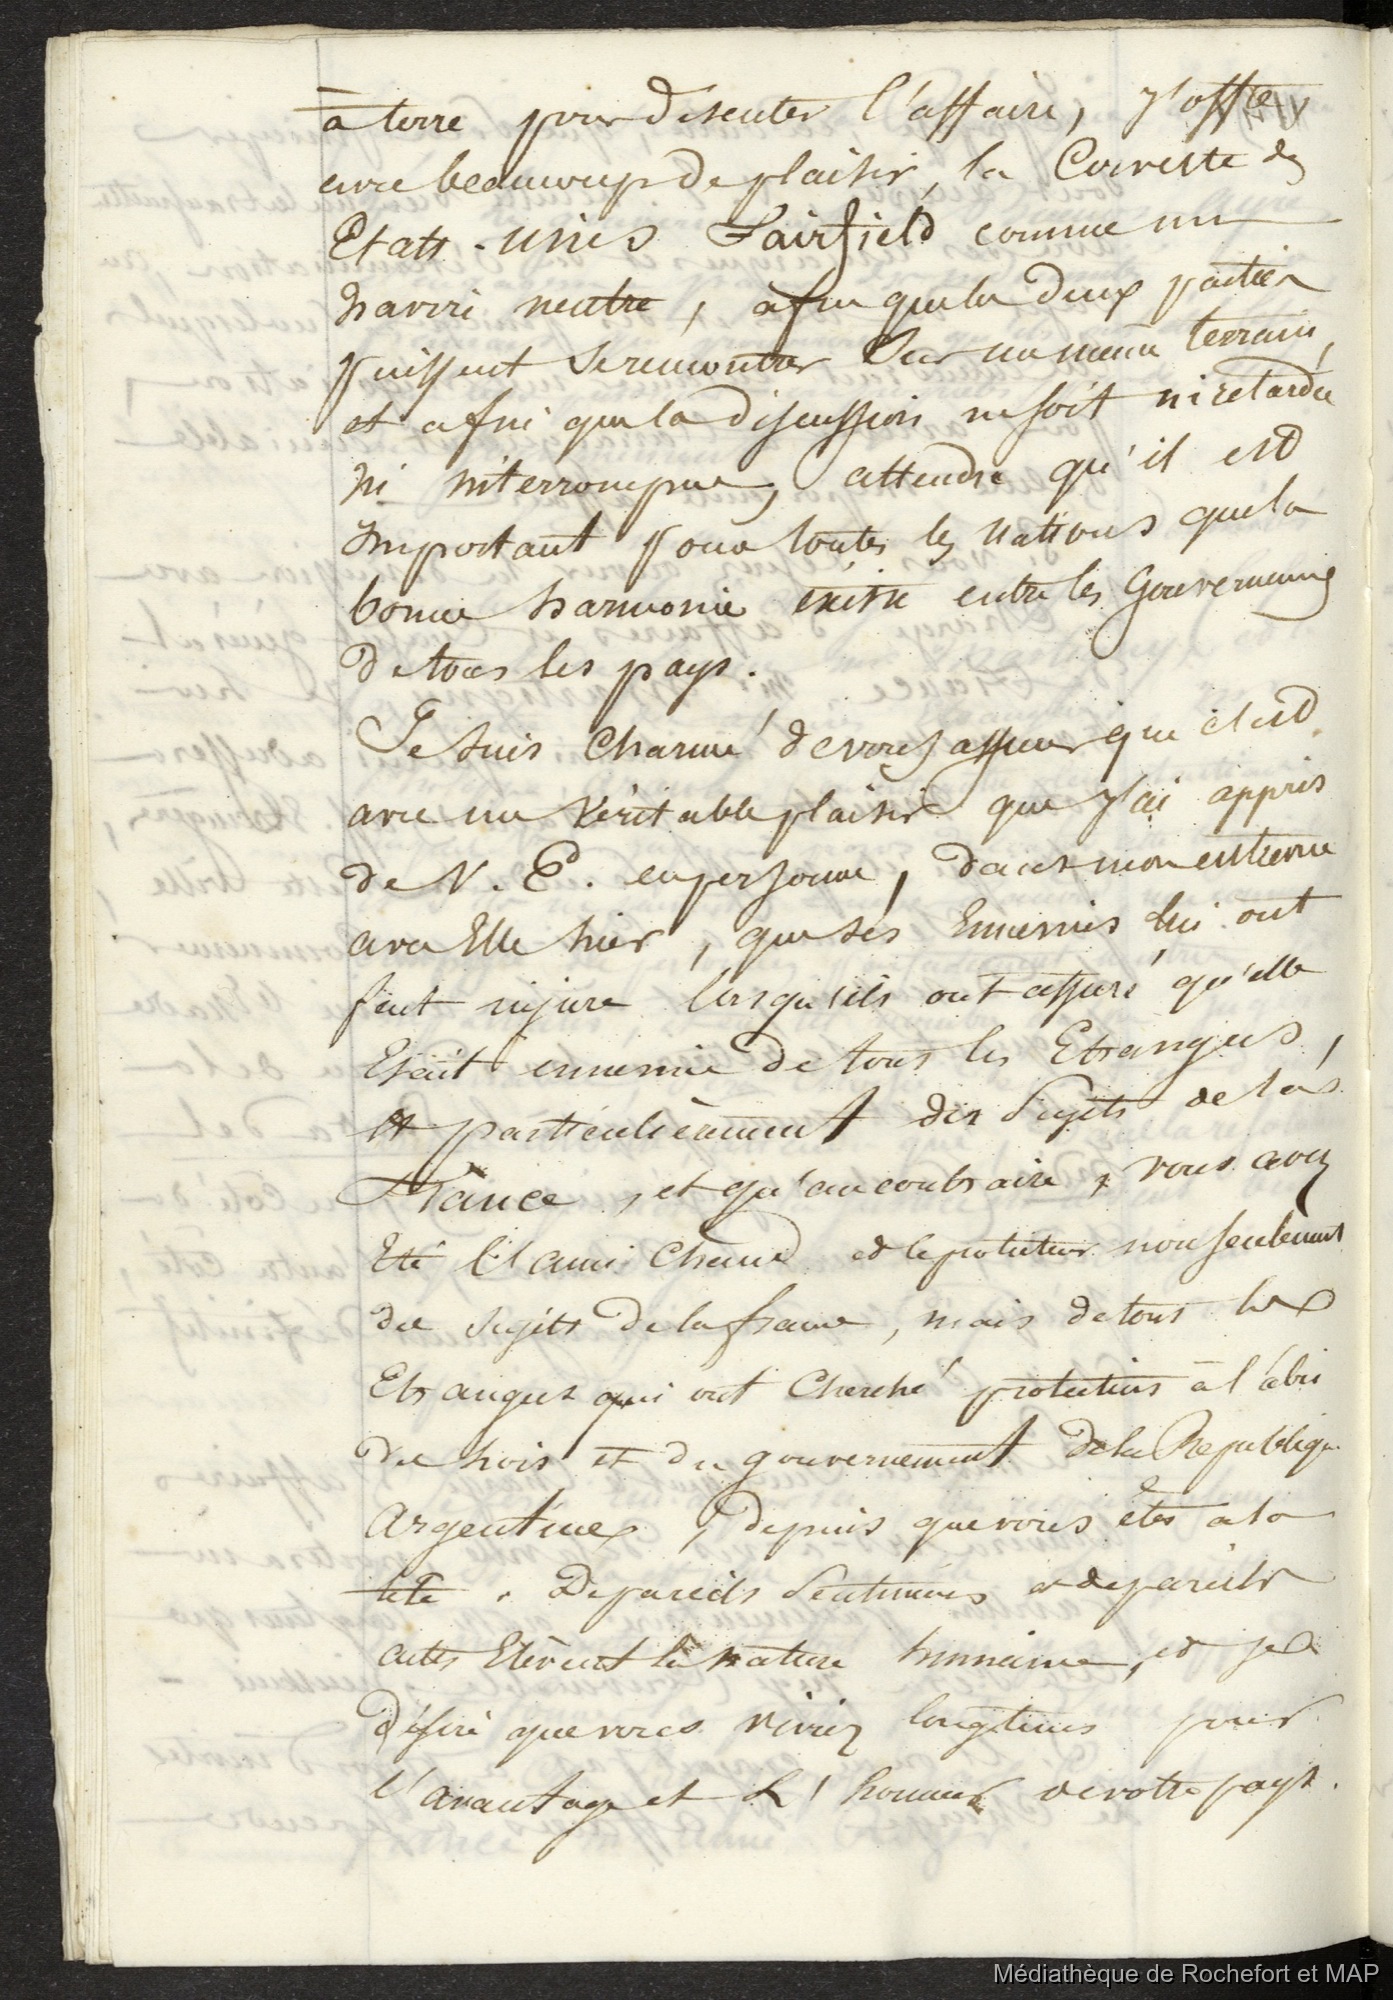 à terre pour discuter l'affaire, j'offre,
avec beaucoup de plaisir, la Corvette des
Etats-unis Fairfield comme un
navire neutre, afin que les deux parties
puissent se rencontrer sur un même terrain,
et afin que la discussion ne soit ni retardée
ni interrompue, attendu qu'il est
important pour toutes les nations que la
bonne harmonie existe entre les Gouvernemens
de tous les pays.
Je suis charmé de vous assurer que c'est
avec un véritable plaisir que j'ai appris
de V. E. en personne, dans mon entrevue
avec Elle hier, que ses Ennemis lui ont
fait injure lorsqu'ils ont assuré qu'elle
Etait ennemie de tous les Etrangers,
et particulièrement des Sujets de la
France, et qu'au contraire, vous avez
Eté l'ami chaud et le protecteur non seulement
des sujets de la france, mais de tous les
Etrangers qui ont cherché protection à l'abri
des lois et du gouvernement de la République
Argentine, depuis que vous êtes à la
tête. De pareils Sentimens et de pareils
actes Elèvent la nature humaine, et je
désire que vous viviez longtems pour
l'avantage et l'honneur de votre pays.
Médiathèque de Rochefort et MAP